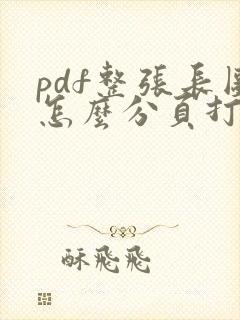 pdf整張長圖
怎麼分頁打
酥飛飛